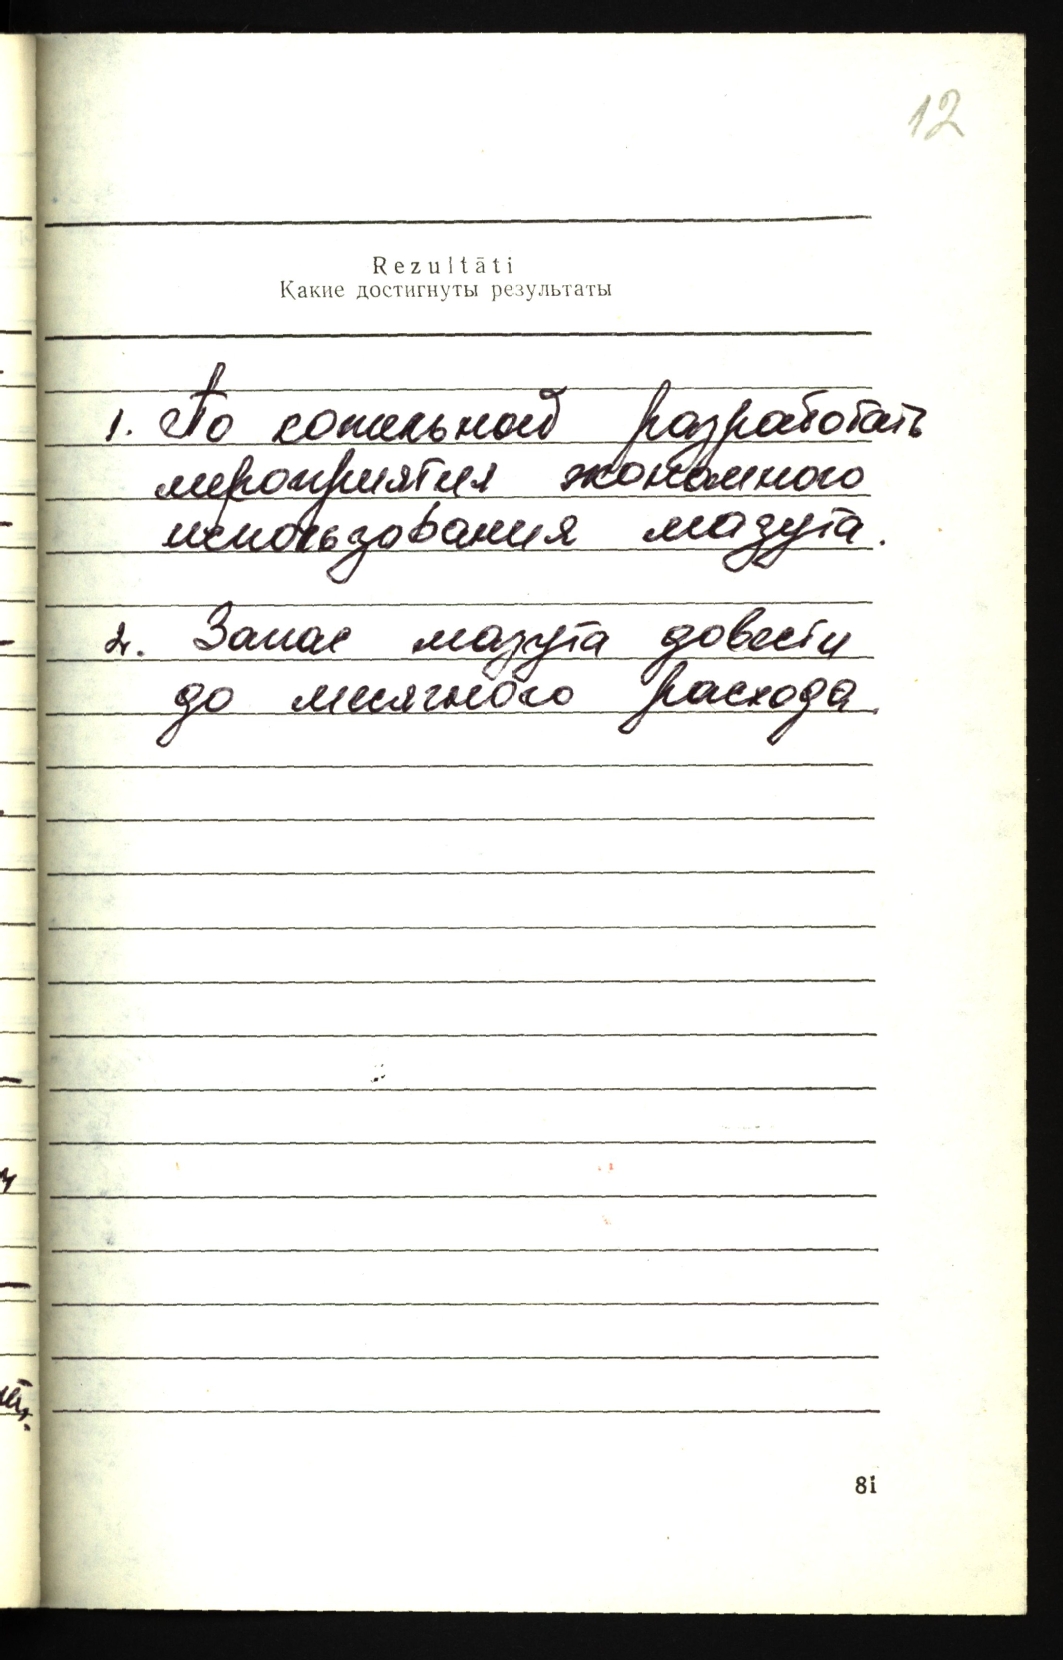 12
Rezultāti
Какие достигнуты результаты
1. По котельной разработать
мероприятия экономного
использования мазута.
2. Запас мазута довести
до месячного расхода.
81